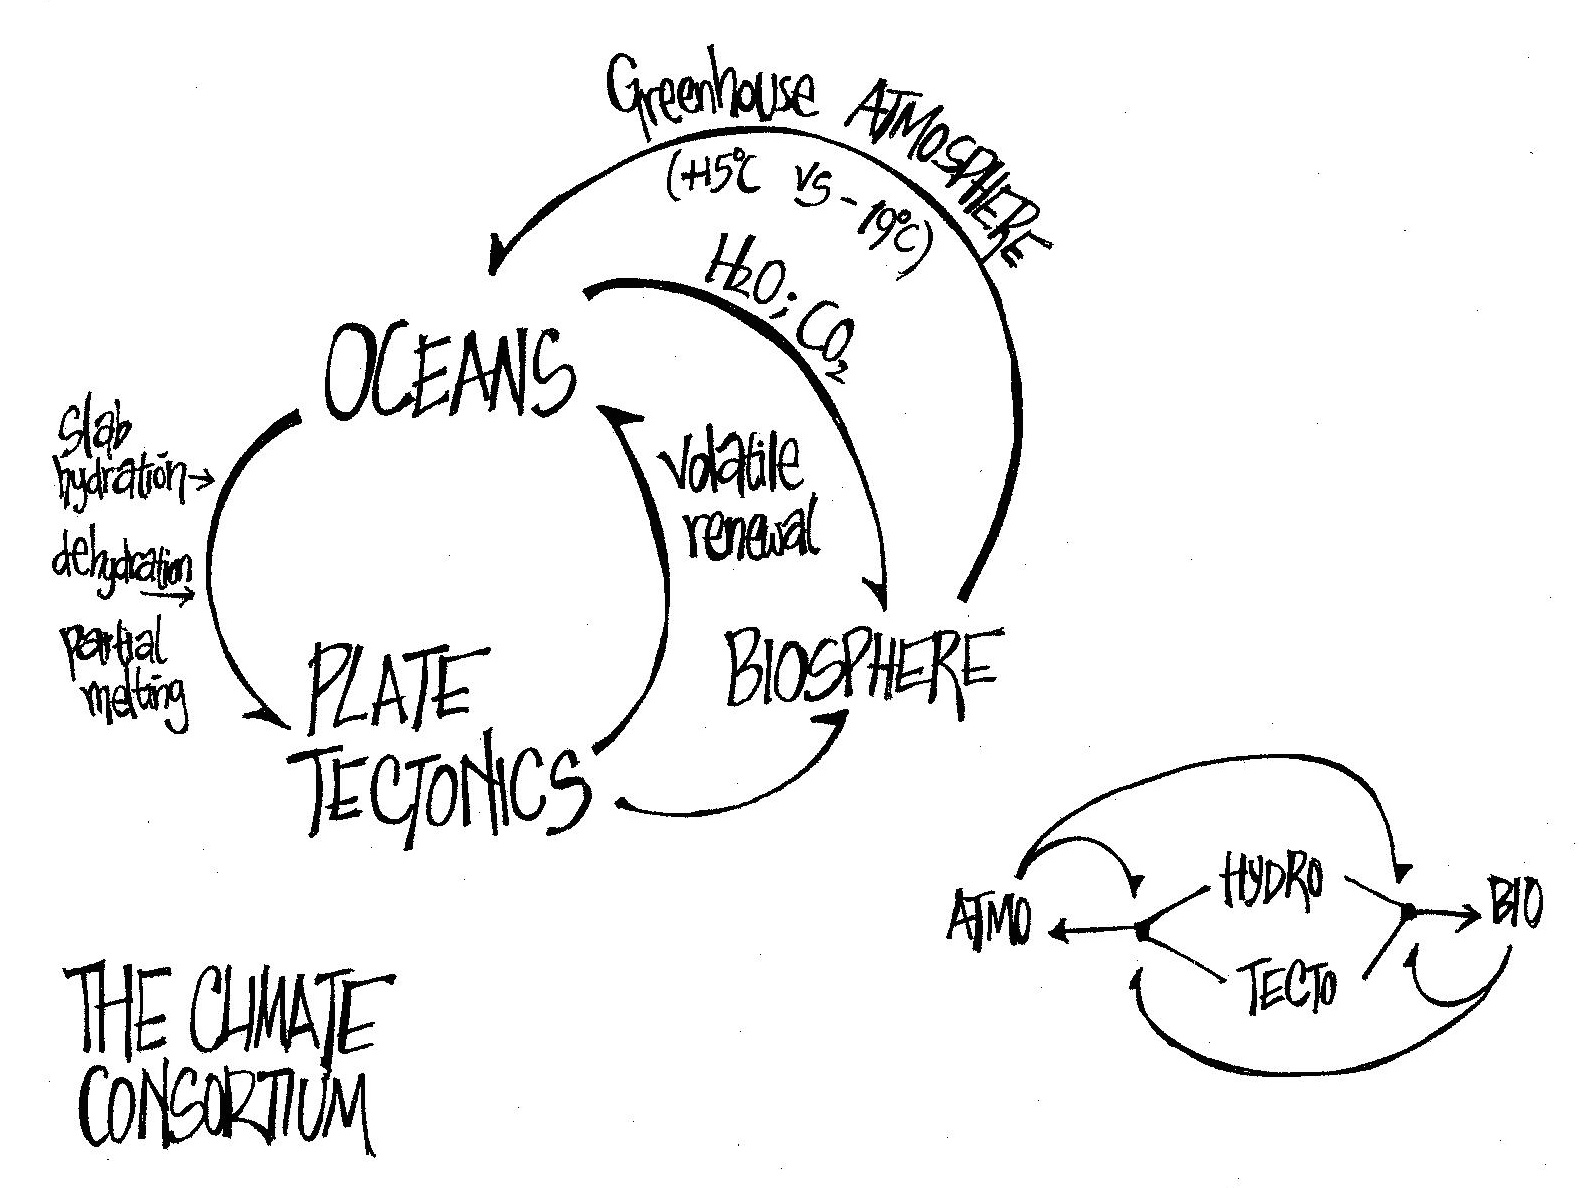 Greenhouse ATMOSPHERE
(+15°C vs -19°C)
H2O; CO2
OCEANS
slab
hydration→
dehydration
→
partial
melting
volatile
renewal
PLATE
TECTONICS
BIOSPHERE
HYDRO
ATMO
BIO
TECTO
THE CLIMATE
CONSORTIUM